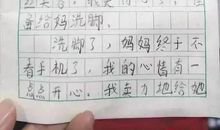 给妈洗脚。
洗脚了，妈妈终于不
看手机了，我的心情有一
点点开心。我卖力地给她